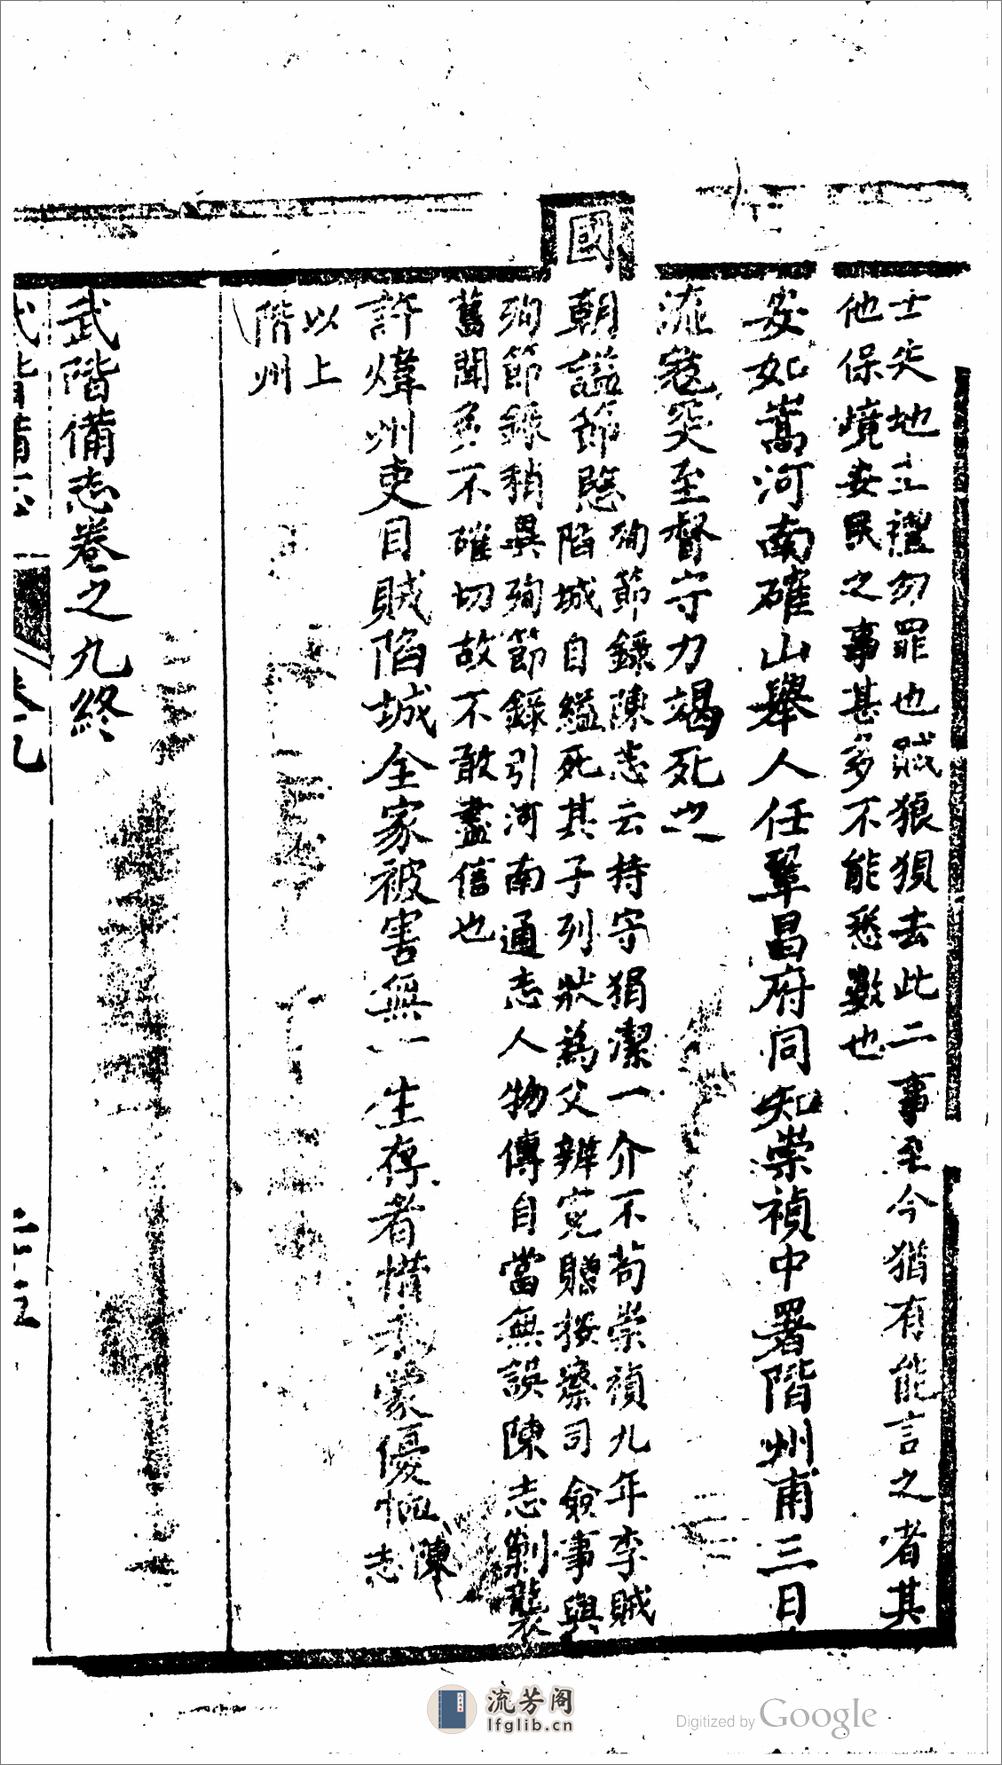 士失地主禮勿罪也賊狼狽去此二事至今猶有能言之者其
他保境安民之事甚多不能悉數也
安如嵩河南確山舉人任鞏昌府同知崇禎中署階州甫三日
流寇突至督守力竭死之
國
朝謚節愍
殉節錄陳志云持守狷潔一介不茍崇禎九年李賊
陷城自縊死其子列狀為父辨寃贈按察司僉事與
殉節錄稍異殉節錄引河南通志人物傳自當無誤陳志剿襲
舊聞多不確切故不敢盡信也
許煒州吏目賊陷城全家被害無一生存者惜未蒙優恤
陳
志
以上
階州
武階備志卷之九終
流芳阁
lfglib.cn
Digitized by Google